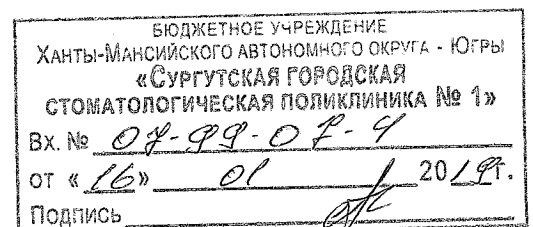 БЮДЖЕТНОЕ УЧРЕЖДЕНИЕ
ХАНТЫ-МАНСИЙСКОГО АВТОНОМНОГО ОКРУГА - ЮГРЫ
«СУРГУТСКАЯ ГОРОДСКАЯ
СТОМАТОЛОГИЧЕСКАЯ ПОЛИКЛИНИКА № 1»
Вх. № 07-99-07-4
от «16» 01 2019г.
Подпись